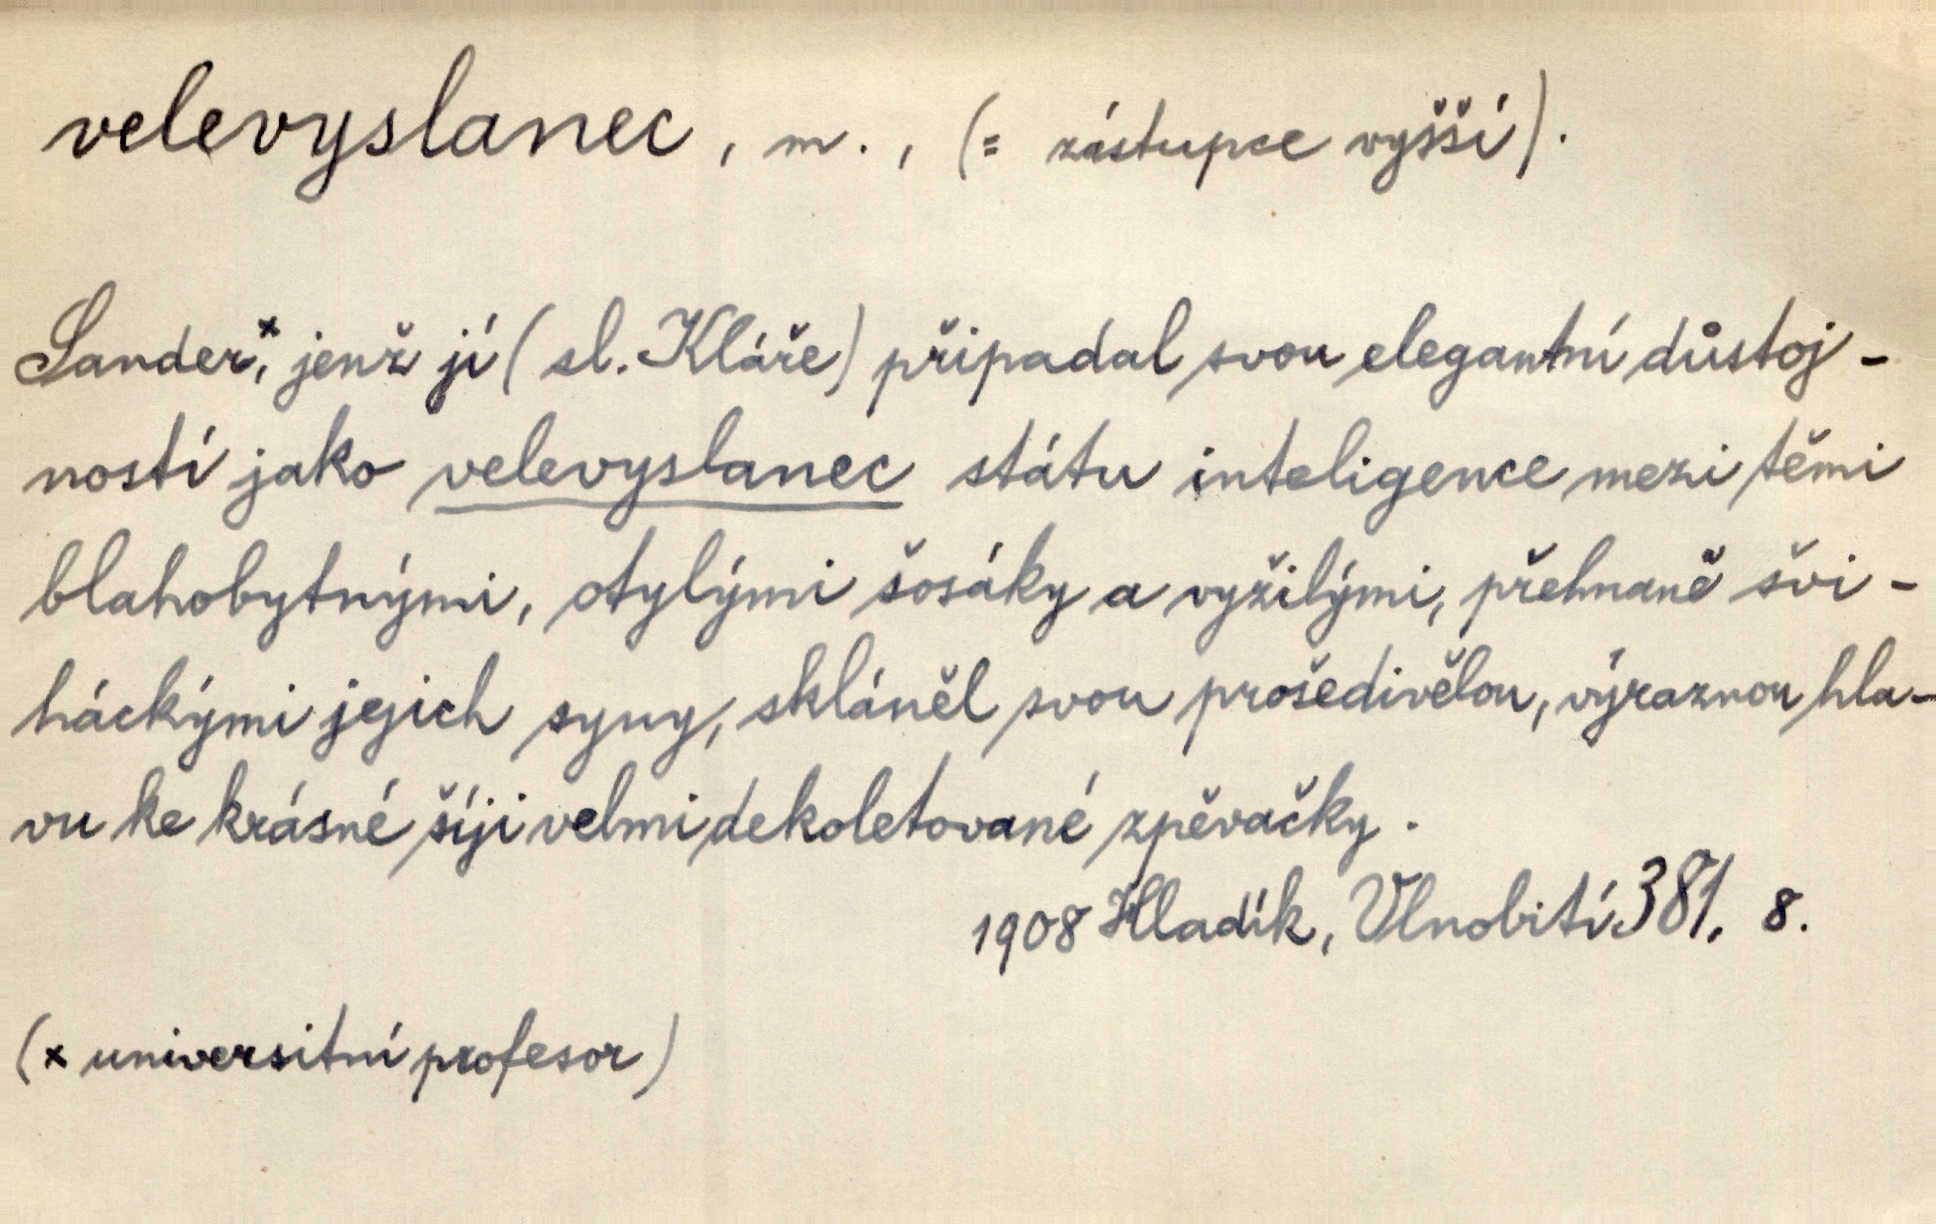 velevyslanec, m., (= zástupce vyšší).
Sander,ˣ jenž jí (sl. Kláře) připadal svou elegantní důstoj-
ností jako velevyslanec státu inteligence mezi těmi
blahobytnými, otylými šosáky a vyžilými, přehnaně švi-
háckými jejich syny, skláněl svou prošedivělou, výraznou hla-
vu ke krásné šíji velmi dekoletované zpěvačky.
1908 Hladík, Vlnobití 381, 8.
(x universitní profesor)